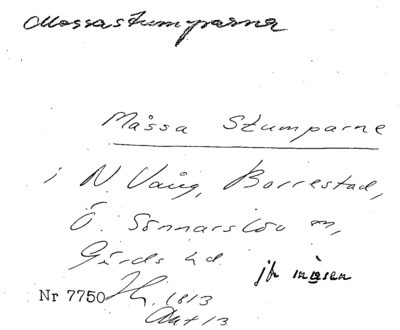 Mossastumparna
Måssa Stumparne
i N. Vång, Borrestad,
Ö. Sönnarslöv sn,
Gärds hd.
jfr måsen
Nr 7750 1813
Akt 13